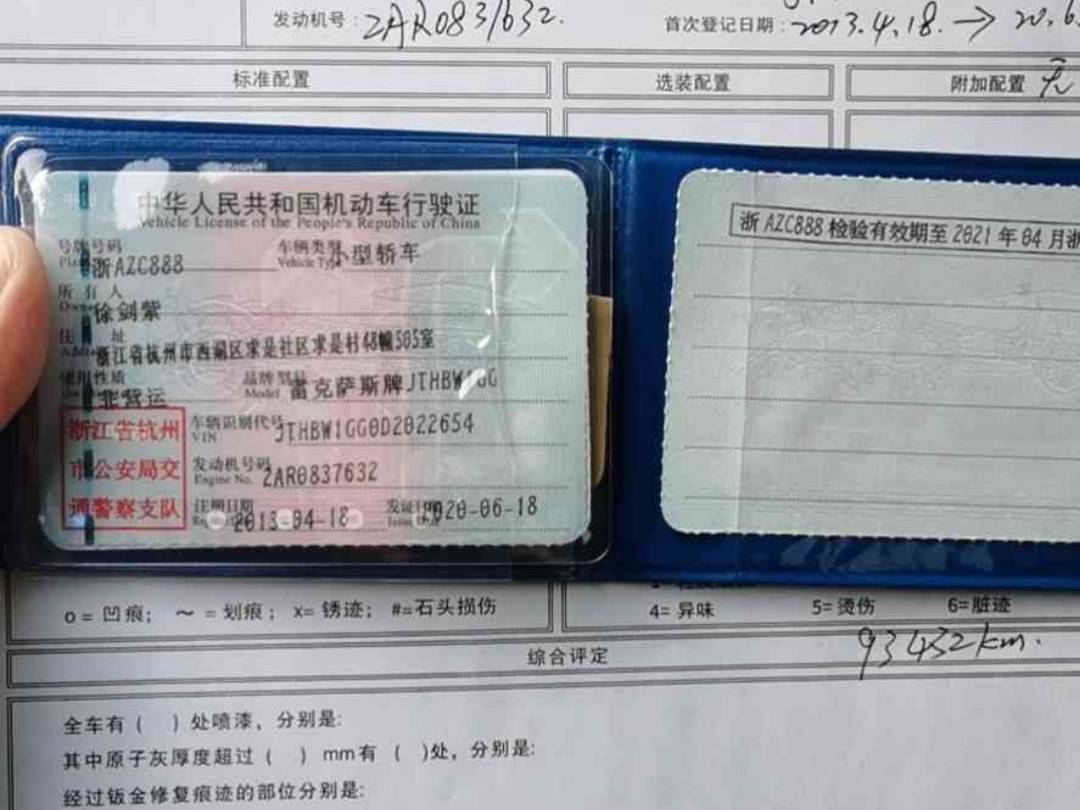 发动机号：2AR0837632.
首次登记日期：2013.4.18. → 20.6.
标准配置
选装配置
附加配置 无
中华人民共和国机动车行驶证
Vehicle License of the People's Republic of China
号牌号码 浙AZC888 车辆类型 小型轿车
Vehicle Type
所有人 徐剑紫
住址 浙江省杭州市西湖区求是社区求是村48幢505室
使用性质 非营运
品牌型号 雷克萨斯牌JTHBW1GG
Model
浙江省杭州
市公安局交
通警察支队
车辆识别代号 JTHBW1GG0D2022654
VIN
发动机号码 2AR0837632
Engine No.
注册日期 2013-04-18
发证日期 2020-06-18
浙AZC888检验有效期至2021年04月浙
o = 凹痕； ～ = 划痕； x= 锈迹； #=石头损伤
4= 异味 5= 烫伤 6=脏迹
综合评定
93432km.
全车有（ ）处喷漆，分别是:
其中原子灰厚度超过（ ） mm有（ ）处，分别是:
经过钣金修复痕迹的部位分别是: